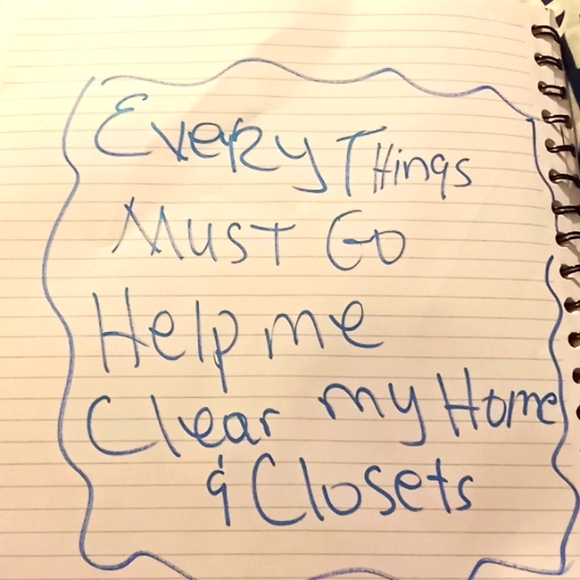 Every Things
Must Go
Help me
Clear my Home
& Closets